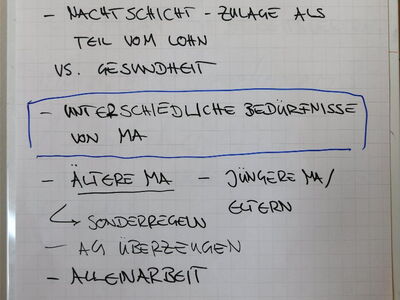 - NACHTSCHICHT - ZULAGE ALS
TEIL VOM LOHN
VS. GESUNDHEIT
- UNTERSCHIEDLICHE BEDÜRFNISSE
VON MA
- ÄLTERE MA - JÜNGERE MA/
ELTERN
↳ SONDERREGELN
- AG ÜBERZEUGEN
- ALLEINARBEIT